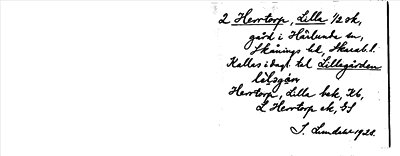 2 Herrtorp, Lilla 1/2 sk,
gård i Härlunda sn,
Skånings hd, Skarab. l.
Kallas i dagl. tal Lillegården
Herrtorp, Lilla bek, Kb,
L Herrtorp ek, GS
J. Lundahl 1921.